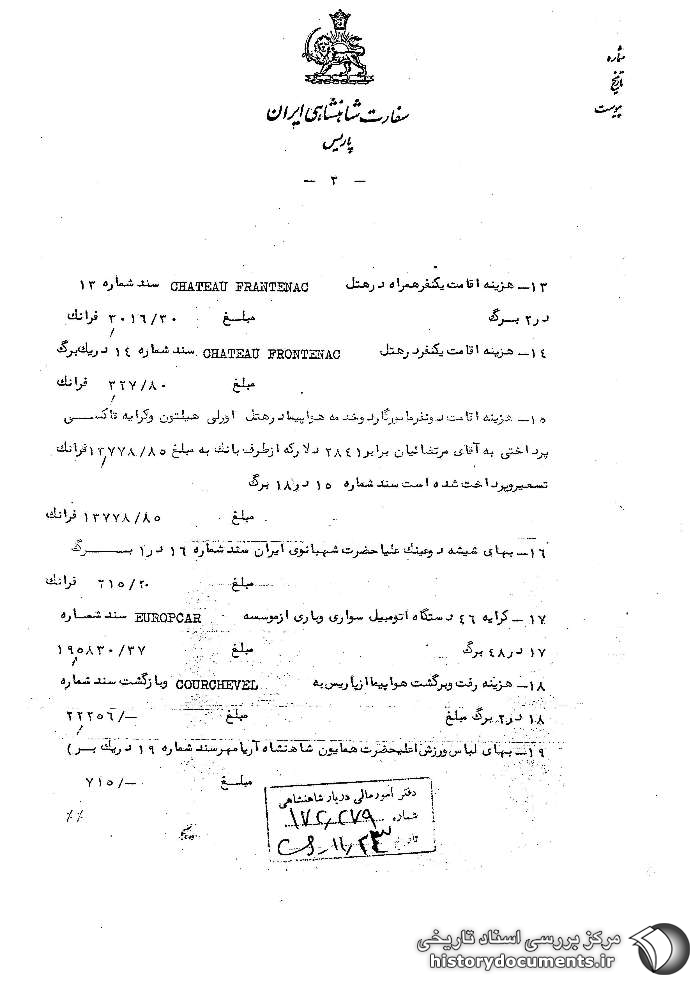 شماره
تاریخ
پیوست
سفارت شاهنشاهی ایران
پاریس
— ۳ —
۱۳ـ هزینه اقامت یکنفر همراه در هتل CHATEAU FRANTENAC سند شماره ۱۳
در ۲ برگ مبلغ ۳۰۱۶/۳۰ فرانک
۱۴ـ هزینه اقامت یکنفر در هتل CHATEAU FRONTENAC سند شماره ۱۴ در یک برگ
مبلغ ۳۲۷/۸۰ فرانک
۱۵ـ هزینه اقامت دو نفر مامور گارد و خدمه هواپیما در هتل اورلی هیلتون و کرایه تاکسی
پرداختی به آقای مرتضائیان برابر ۲۸۴۱ دلار که از طرف بانک به مبلغ ۱۳۷۷۸/۸۵ فرانک
تسعیر و پرداخت شده است سند شماره ۱۵ در ۱۸ برگ
مبلغ ۱۳۷۷۸/۸۵ فرانک
۱۶ـ بهای شیشه دو عینک علیا حضرت شهبانوی ایران سند شماره ۱۶ در ۱ برگ
مبلغ ۲۱۵/۲۰ فرانک
۱۷ـ کرایه ۴۶ دستگاه اتومبیل سواری و باری از موسسه EUROPCAR سند شماره
۱۷ در ۴۸ برگ مبلغ ۱۹۵۸۳۰/۳۷
۱۸ـ هزینه رفت و برگشت هواپیما از پاریس به COURCHEVEL و بازگشت سند شماره
۱۸ در ۲ برگ مبلغ مبلغ ۲۲۲۵۶/—
۱۹ـ بهای لباس ورزش اعلیحضرت همایون شاهنشاه آریامهر سند شماره ۱۹ در یک بر)
مبلغ ۷۱۵/—
دفتر امور مالی دربار شاهنشاهی
شماره ۱۷۲٫۲۷۹
تاریخ
مرکز بررسی اسناد تاریخی
historydocuments.ir